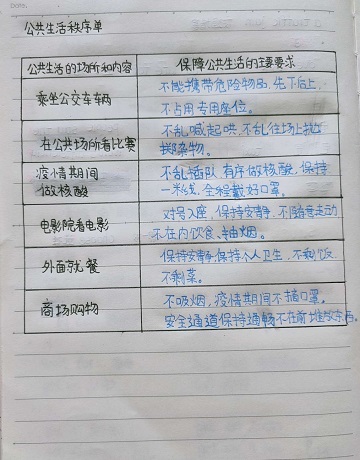 Date.
公共生活秩序单
公共生活的场所和内容
保障公共生活的主要要求
乘坐公交车辆
不能携带危险物品,先下后上,
不占用专用座位。
在公共场所看比赛
不乱喊起哄,不乱往场上抛
掷杂物。
疫情期间
做核酸
不乱插队,有序做核酸,保持
一米线,全程戴好口罩。
电影院看电影
对号入座,保持安静,不随意走动
不在内饮食、抽烟。
外面就餐
保持安静,保持个人卫生,不剩饭
不剩菜。
商场购物
不吸烟,疫情期间不摘口罩。
安全通道保持通畅不在前堆放东西。